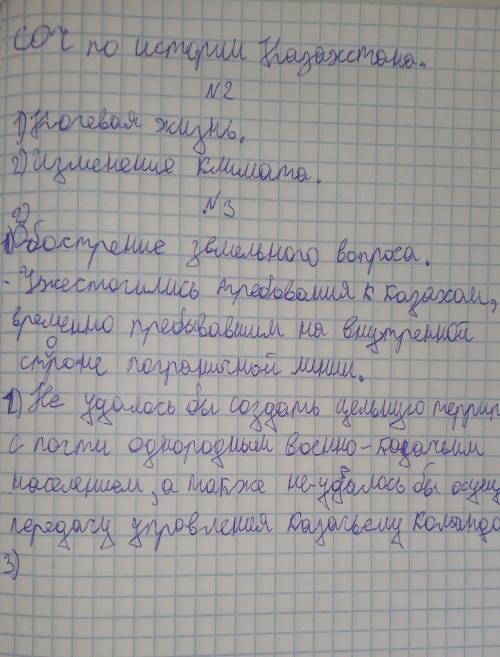 СОЧ по истории Казахстана.
№2
1) Кочевая жизнь.
2) Изменение климата.
№3
2)
1) Обострение земельного вопроса.
- Ужесточились требования к казахам,
временно пребывавшим на внутренной
стороне пограничной линии.
2) Не удалось бы создать цельную террит
с почти однородным военно-казачьим
населением, а также не удалось бы осущ
передачу управления казачьему командо
3)